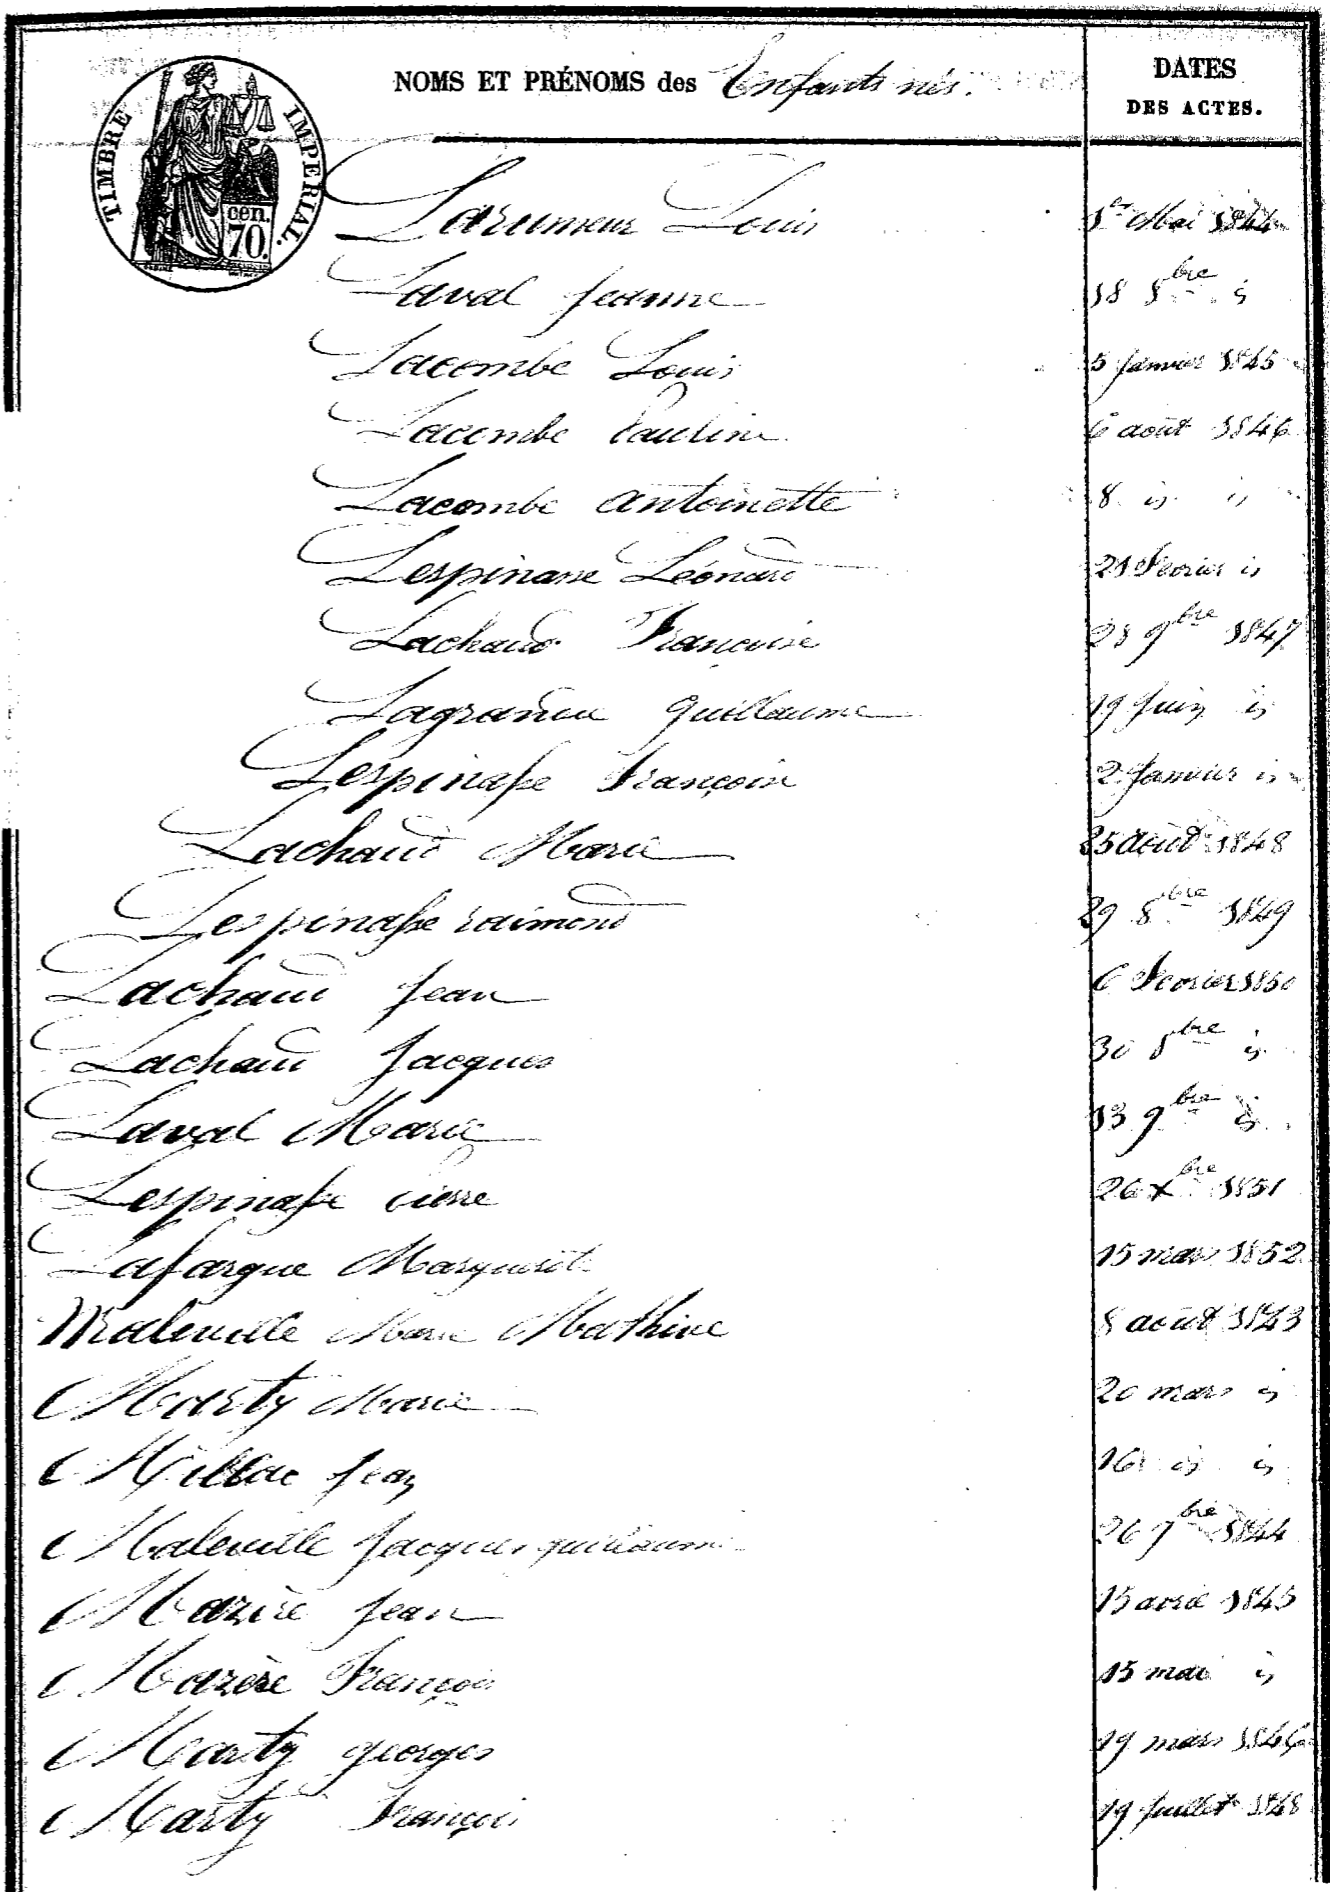 NOMS ET PRÉNOMS des Enfants nés.
DATES
DES ACTES.
TIMBRE IMPERIAL.
cen.
70.
Larumeur Louis 1er Mai 1844
Laval jeanne 18 8bre is
Lacombe Louis 5 janvier 1845
Lacombe Pauline 6 août 1846
Lacombe antoinette 8 is is
Lespinasse Léonard 21 Février is
Lachaud Françoise 28 9bre 1847
Guillaume 19 juin is
Lespinasse François 2 janvier is
Lachaud Marie 25 août 1848
Lespinasse raimond 29 8bre 1849
Lachaud jean 6 Février 1850
Lachaud jacques 30 8bre is
Laval Marie 13 9bre is
Lespinasse pierre 26 Xbre 1851
Lafargue Marguerite 15 mars 1852
Maleville Marie 8 août 1843
Marty Marie 20 mars is
Millac jean 16 is is
Maleville jacques guillaume 26 bre 1844
Mazère jean 15 avril 1845
Mazère François 15 mai is
Marty georges 19 mars 1846
Marty François 19 juillet 1848